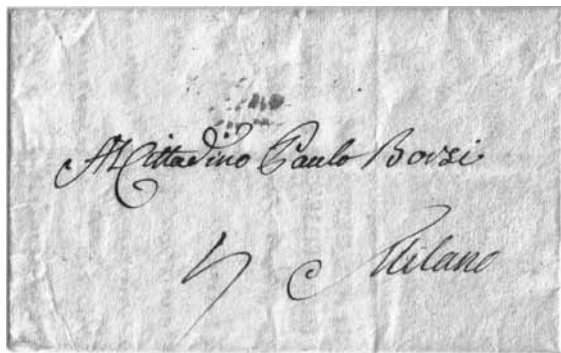 Al Cittadino Paulo Borsi
5 Milano